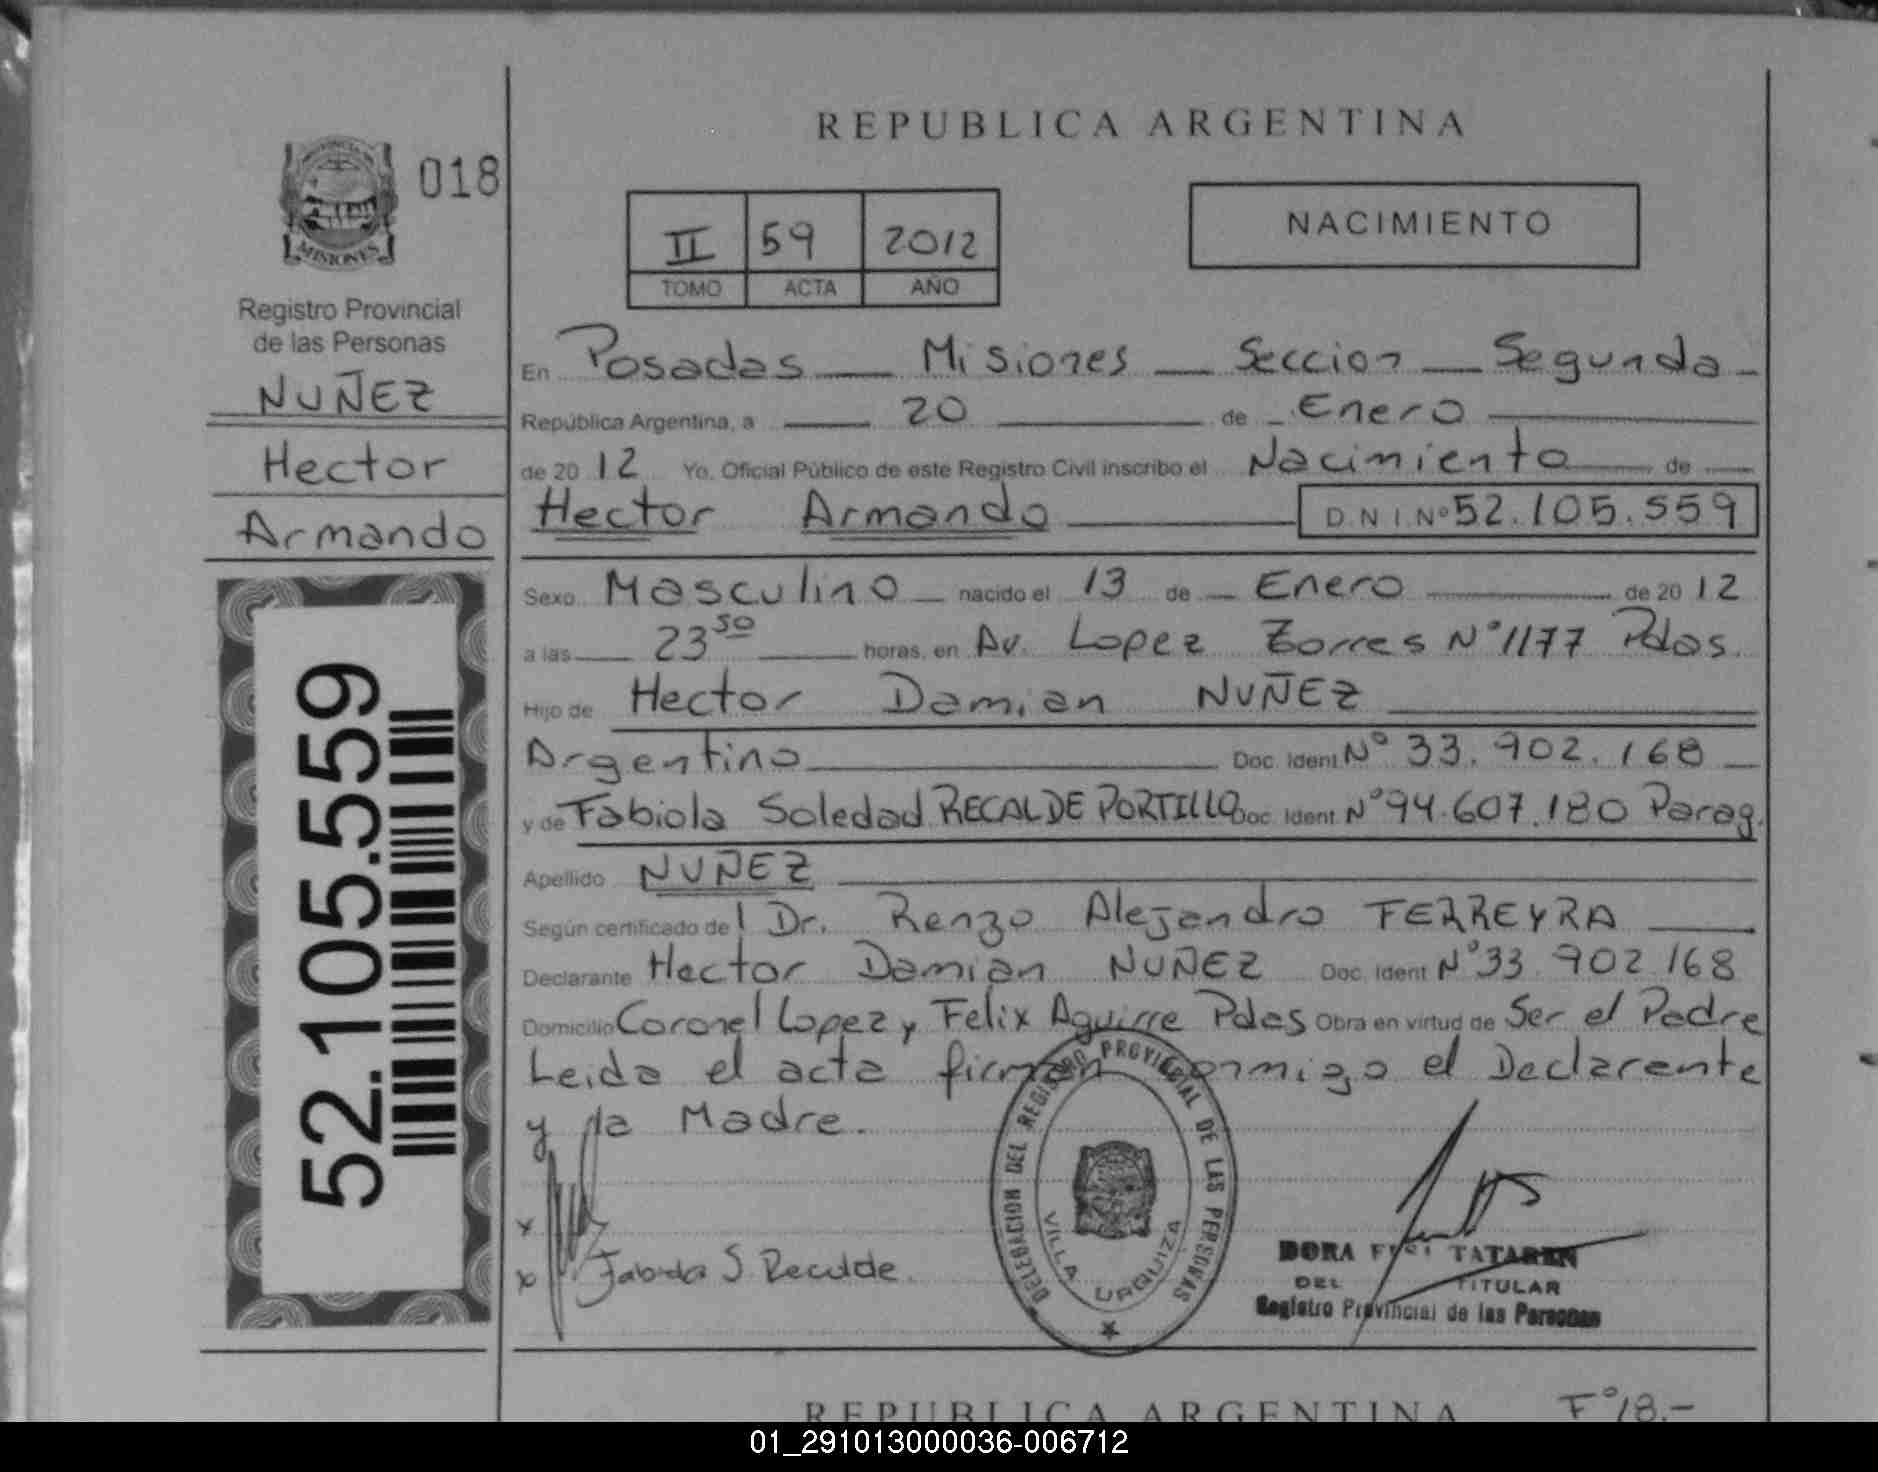 REPUBLICA ARGENTINA
018
MISIONES
Registro Provincial
de las Personas
NUÑEZ
Hector
Armando
52.105.559
II 59 2012
TOMO ACTA AÑO
NACIMIENTO
En Posadas Misiones Seccion Segunda
República Argentina, a 20 de Enero
de 2012 Yo, Oficial Público de este Registro Civil inscribo el Nacimiento de
Hector Armando D.N.I.Nº 52.105.559
Sexo Masculino nacido el 13 de Enero de 2012
a las 23 50 horas, en Av. Lopez Torres Nº 1177 Pdas.
Hijo de Hector Damian NUÑEZ
Argentino Doc. Ident Nº 33.902.168
y de Fabiola Soledad RECALDE PORTILLO Doc. Ident. Nº 94.607.180 Parag.
Apellido NUÑEZ
Según certificado del Dr. Renzo Alejandro FERREYRA
Declarante Hector Damian NUÑEZ Doc. Ident Nº 33.902.168
Domicilio Coronel Lopez y Felix Aguirre Pdas Obra en virtud de Ser el Padre
Leida el acta firman conmigo el Declarante
y la Madre.
x
x Fabiola S. Recalde.
DELEGACION DEL REGISTRO PROVINCIAL DE LAS PERSONAS
VILLA URQUIZA
DORA TATAREN
DEL TITULAR
Registro Provincial de las Personas
REPUBLICA ARGENTINA Fº 18.-
01_291013000036-006712